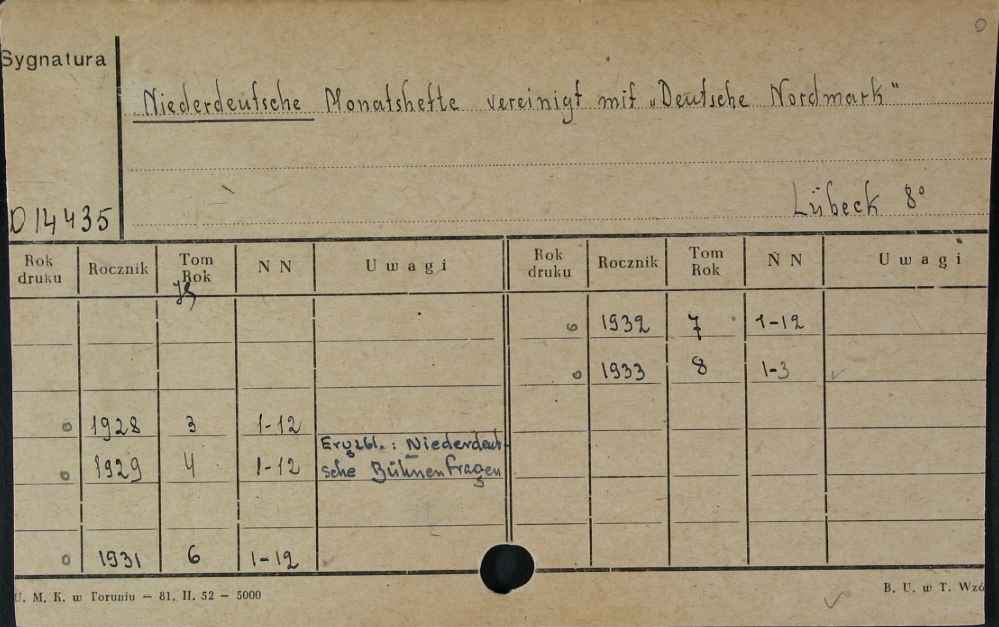 Sygnatura
Niederdeutsche Monatshefte vereinigt mit „Deutsche Nordmark"
Lübeck 8°
D 14435
Rok druku Rocznik Tom Rok N N Uwagi Rok druku Rocznik Tom Rok N N Uwagi
Jg
o 1932 7 1-12
o 1933 8 1-3
o 1928 3 1-12
o 1929 4 1-12 Ergzbl.: Niederdeut-
sche Bühnenfragen
o 1931 6 1-12
U. M. K. w Toruniu — 81. II. 52 — 5000
B. U. w T. Wzó